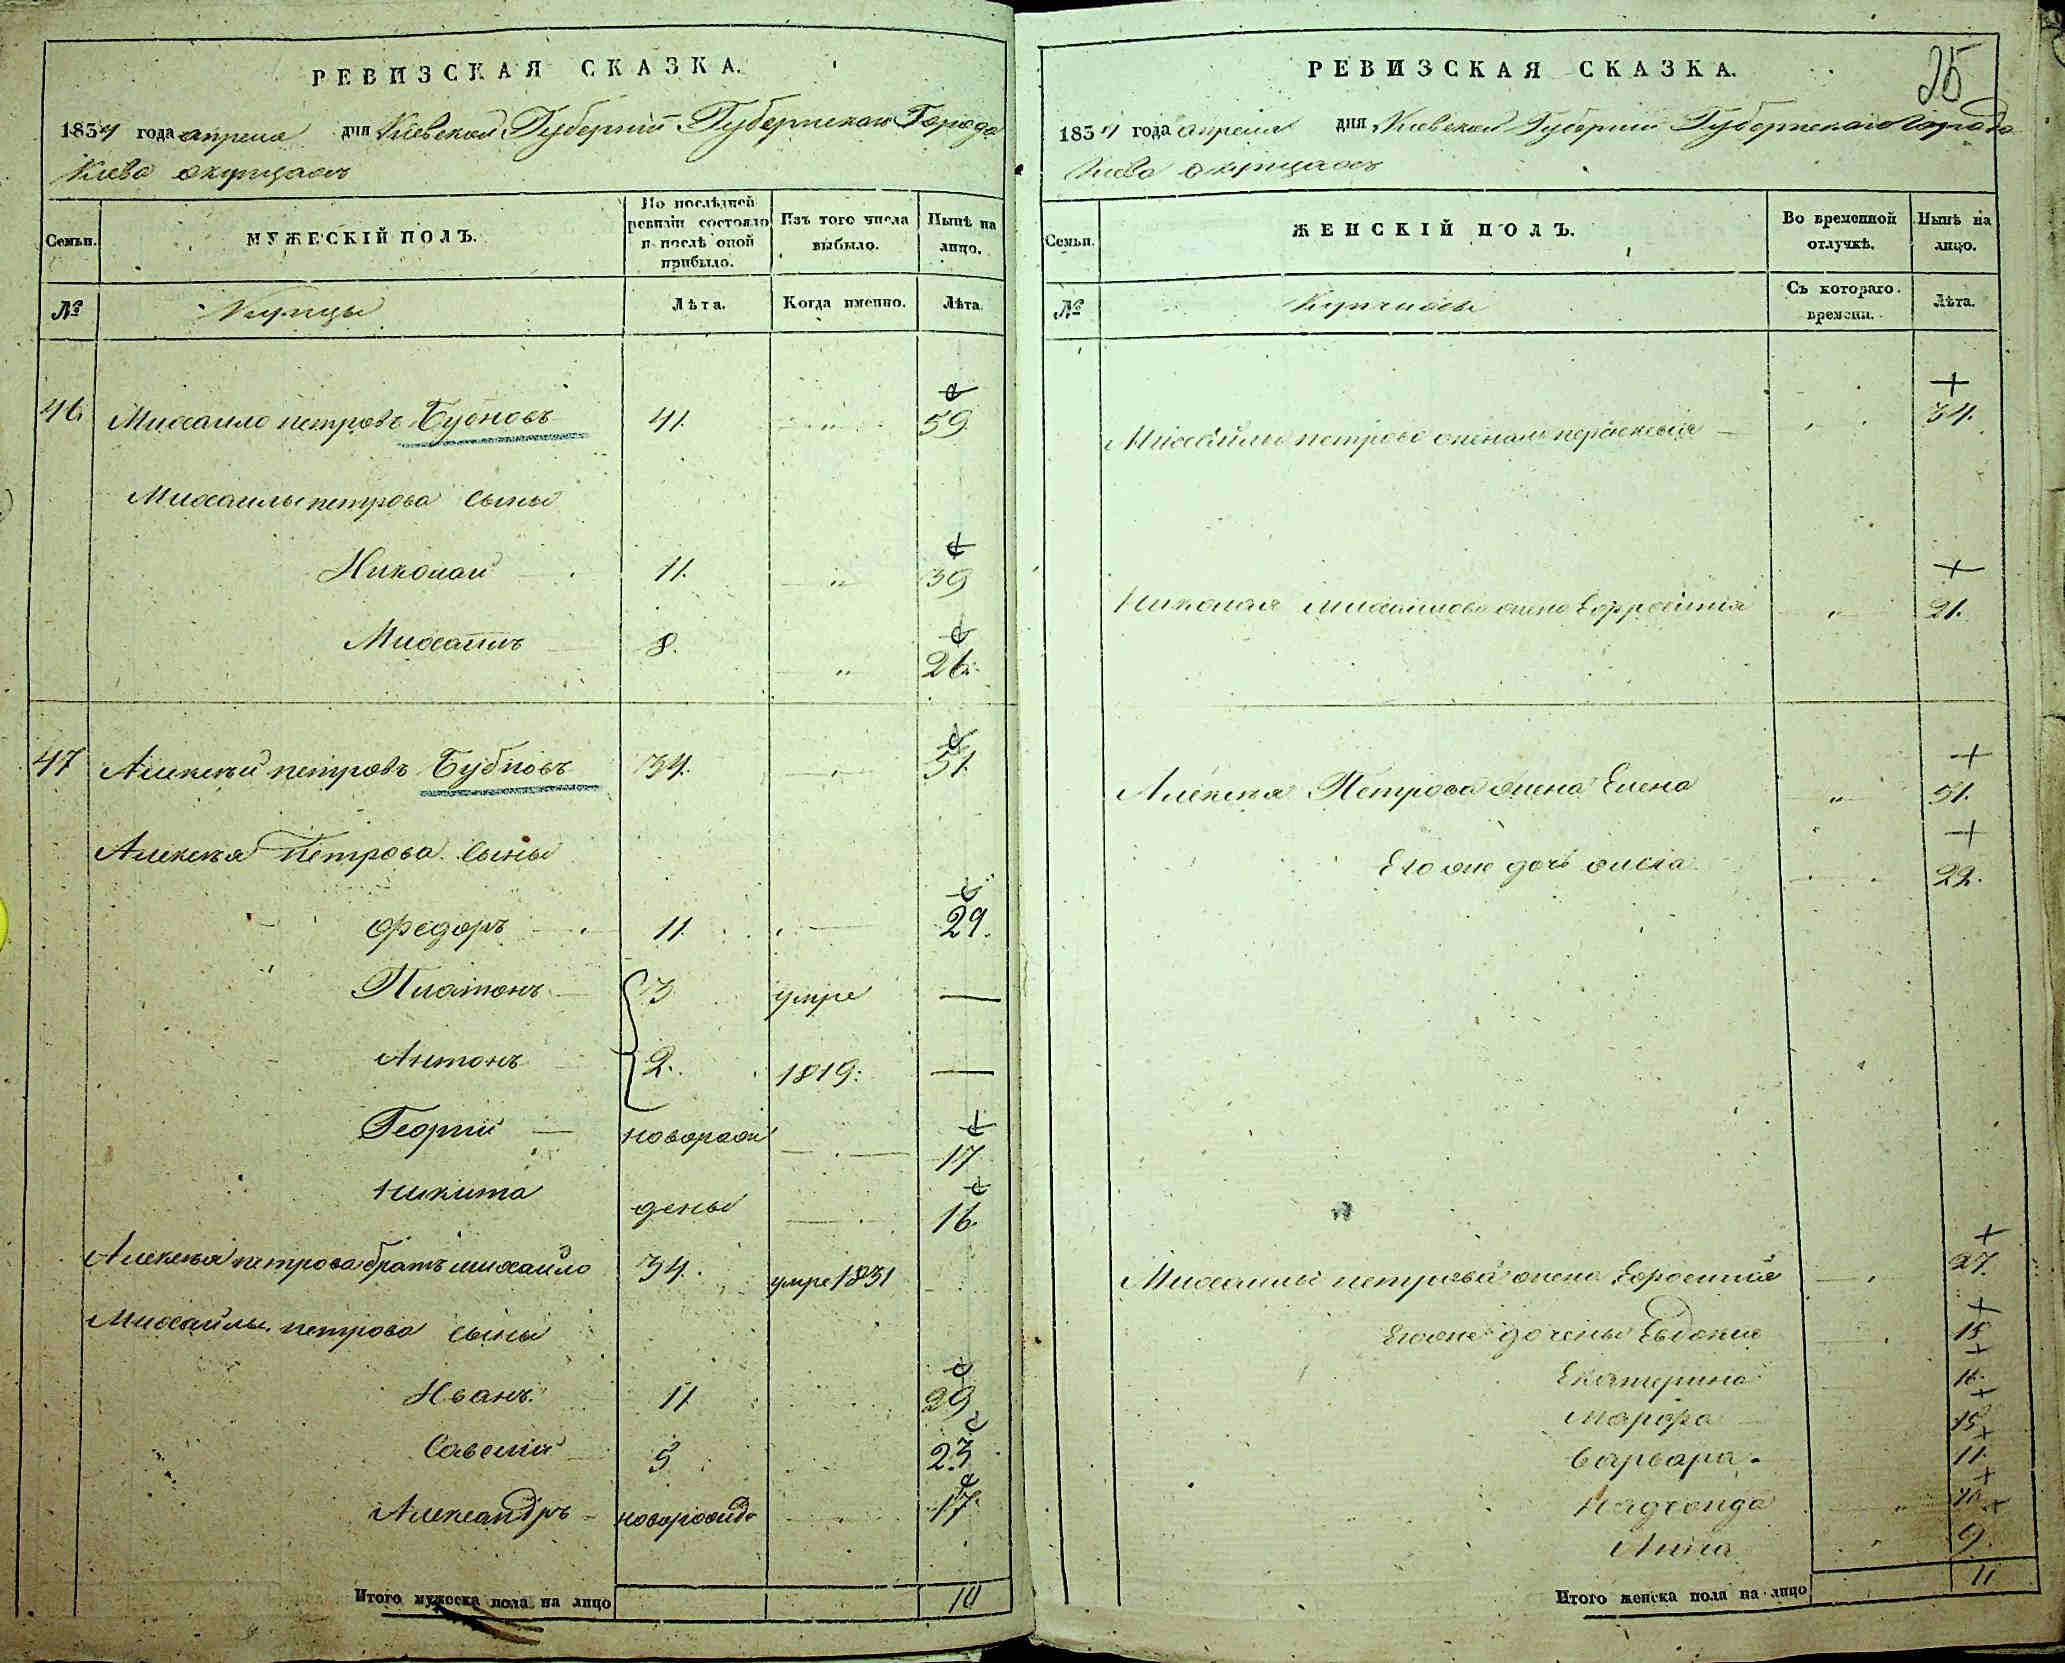 РЕВИЗСКАЯ СКАЗКА.
1834 года апреля дня Киевской Губерніи Губернскаго Города
Киева окупцахъ
Семьи.
МУЖЕСКІЙ ПОЛЪ.
По послѣдней ревизіи состояло и послѣ оной прибыло.
Изъ того числа выбыло.
Нынѣ на лицо.
№
Купцы
Лѣта.
Когда именно.
Лѣта.
46 Михаило петровъ Бубновъ 41. " 59
Михаилы петрова сыны
Николай 11. " 39
Михаилъ 8. " 26.
47 Алексѣй петровъ Бубновъ 34. 51.
Алексѣя Петрова сыны
Федоръ 11 29.
Платонъ 3 умре —
Антонъ 2. 1819. —
Георгій — новорож 17
Никита дены 16.
Алексѣя петрова братъ михаило 34. умре 1831
Михаилы петрова сыны
Иванъ 11 29
Савелій 5 23
Александръ новорожд 17.
Итого мужеска пола на лицо 10
РЕВИЗСКАЯ СКАЗКА.
25
1834 года апреля дня Киевской Губерніи Губернскаго Города
Киева окупцахъ
Семьи.
ЖЕНСКІЙ ПОЛЪ.
Во временной отлучкѣ.
Нынѣ на лицо.
№
Съ котораго времени.
Лѣта.
Михайлы петрова жена 34.
Николая михайлова жена " 21.
Алексѣя Петрова жена Елена " 51.
Его же дочь 22.
Михаилы петрова жена 27.
Егоже дочены Евдокия 18
Екатерина 16.
Марфа 15
Варвара 11.
Надежда "
Анна " 9.
Итого женска пола на лицо 11